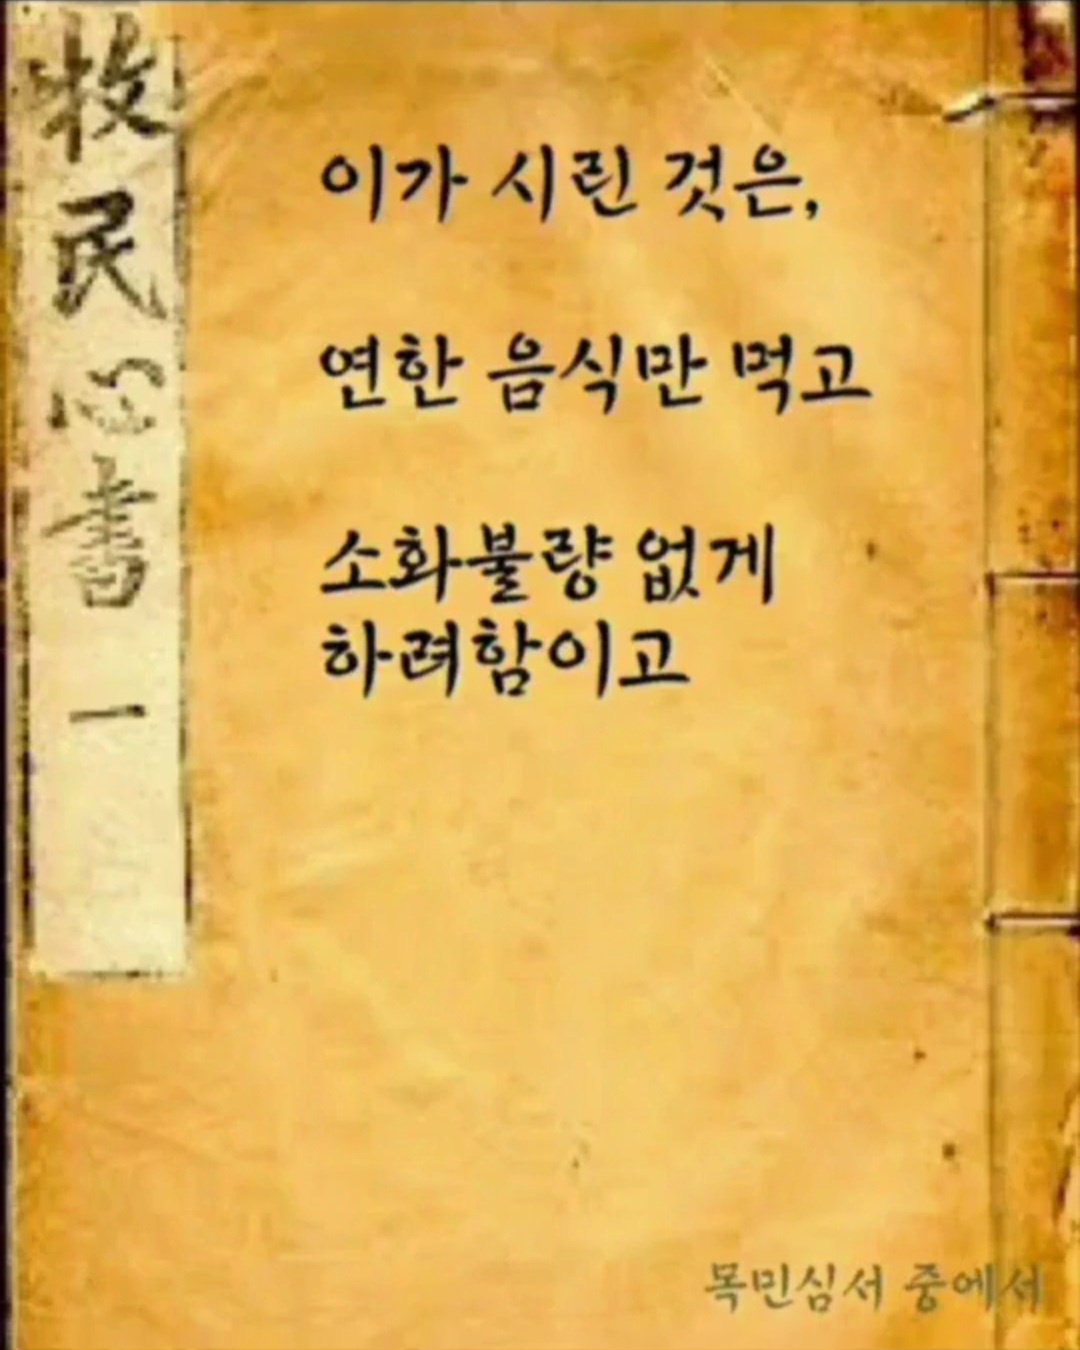 牧民心書 一
이가 시린 것은,
연한 음식만 먹고
소화불량 없게
하려함이고
목민심서 중에서